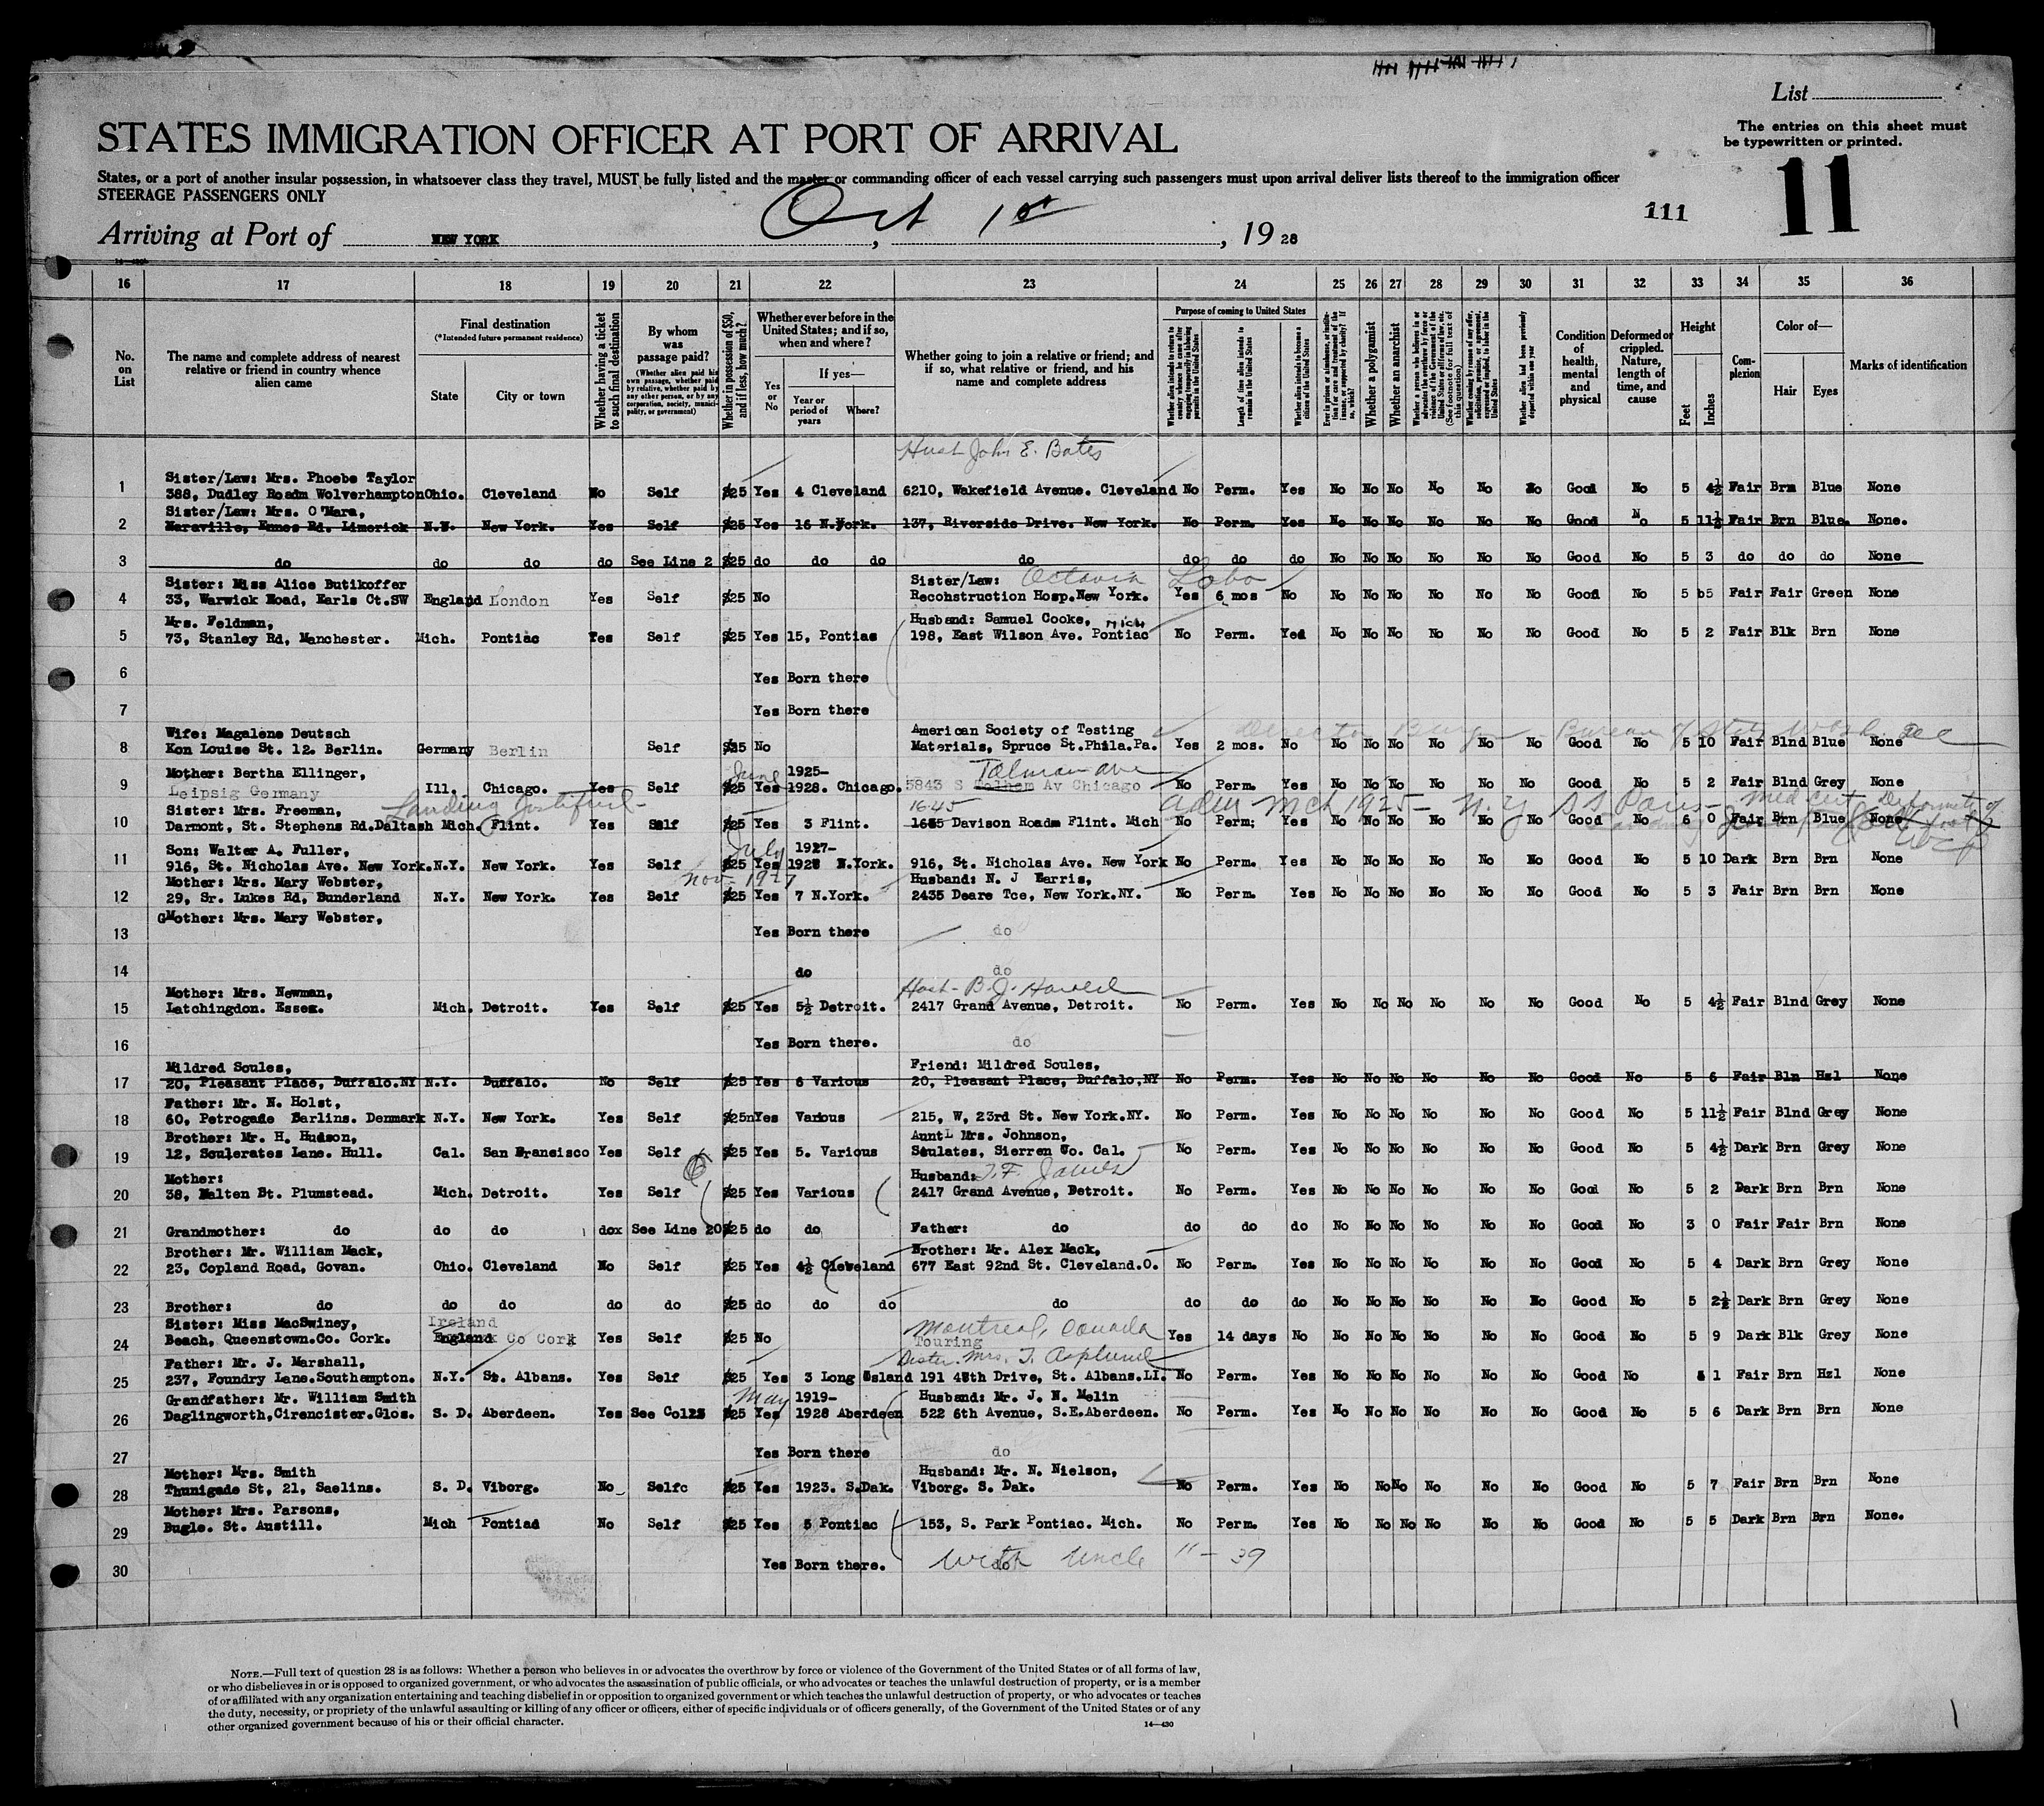 List
The entries on this sheet must
be typewritten or printed.
STATES IMMIGRATION OFFICER AT PORT OF ARRIVAL
11
States, or a port of another insular possession, in whatsoever class they travel, MUST be fully listed and the master or commanding officer of each vessel carrying such passengers must upon arrival deliver lists thereof to the immigration officer
STEERAGE PASSENGERS ONLY
111
Arriving at Port of NEW YORK, Oct 1st, 19 28
16 17 18 19 20 21 22 23 24 25 26 27 28 29 30 31 32 33 34 35 36
No. on List
The name and complete address of nearest relative or friend in country whence alien came
Final destination (*Intended future permanent residence)
State
City or town
Whether having a ticket to such final destination
By whom was passage paid? (Whether alien paid his own passage, whether paid by relative, whether paid by any other person, or by any corporation, society, municipality, or government)
Whether in possession of $50, and if less, how much?
Whether ever before in the United States; and if so, when and where?
Yes or No
If yes—
Year or period of years
Where?
Whether going to join a relative or friend; and if so, what relative or friend, and his name and complete address
Purpose of coming to United States
Length of time alien intends to remain in the United States
Whether alien intends to become a citizen of the United States
Whether a polygamist
Whether an anarchist
Condition of health, mental and physical
Deformed or crippled. Nature, length of time, and cause
Height
Feet
Inches
Complexion
Color of—
Hair
Eyes
Marks of identification
Husb John E. Bates
Sister/Law: Mrs. Phoebe Taylor
1 388, Dudley Roadm Wolverhampton Ohio. Cleveland No Self $25 Yes 4 Cleveland 6210, Wakefield Avenue. Cleveland No Perm. Yes No No No No No No Good No 5 4½ Fair Brn Blue None
Sister/Law: Mrs. O'Mara,
2 Naraville, Ennes Rd. Limerick N.Y. New York. Yes Self $25 Yes 16 N.York. 137, Riverside Drive. New York. No Perm. Yes No No No No No No Good No 5 11½ Fair Brn Blue. None.
3 do do do do See Line 2 $25 do do do do do do do No No No No No No Good No 5 3 do do do None
Sister: Miss Alice Butikoffer Sister/Law: Octavia Lobo
4 33, Warwick Road, Earls Ct.SW England London Yes Self $25 No Reconstruction Hosp.New York. Yes 6 mos No No No No No No No Good No 5 b5 Fair Fair Green None
Mrs. Feldman, Husband: Samuel Cooke, Mich
5 73, Stanley Rd, Manchester. Mich. Pontiac Yes Self $25 Yes 15, Pontiac 198, East Wilson Ave. Pontiac No Perm. Yed No No No No No No Good No 5 2 Fair Blk Brn None
6 Yes Born there
7 Yes Born there
Wife: Magalene Deutsch American Society of Testing
8 Kon Louise St. 12. Berlin. Germany Berlin Self $25 No Materials, Spruce St.Phila.Pa. Yes 2 mos. No No No No No No No Good No 5 10 Fair Blnd Blue None
Mother: Bertha Ellinger, June 1925- Talman ave
9 Leipsig Germany Ill. Chicago. Yes Self $25 Yes 1928. Chicago. 5843 S Av Chicago No Perm. Yes No No No No No No Good No 5 2 Fair Blnd Grey None
Sister: Mrs. Freeman, 1645
10 Darmont, St. Stephens Rd.Daltash Mich. Flint. Yes Self $25 Yes 3 Flint. 1685 Davison Roadm Flint. Mich No Perm; Yes No No No No No No Good No 6 0 Fair Brn Blue None
Son: Walter A. Fuller, July 1927-
11 916, St. Nicholas Ave. New York. N.Y. New York. Yes Self $25 Yes 1928 N.York. 916, St. Nicholas Ave. New York No Perm. Yes No No No No No No Good No 5 10 Dark Brn Brn None
Mother: Mrs. Mary Webster, Nov 1927 Husband: N. J Harris,
12 29, Sr. Lukes Rd, Sunderland N.Y. New York. Yes Self $25 Yes 7 N.York. 2435 Deare Tce, New York.NY. No Perm. Yes No No No No No No Good No 5 3 Fair Brn Brn None
GMother: Mrs. Mary Webster,
13 Yes Born there do
14 do do
Mother: Mrs. Newman,
15 Latchingdon. Essex. Mich. Detroit. Yes Self $25 Yes 5½ Detroit. 2417 Grand Avenue, Detroit. No Perm. Yes No No No No No No Good No 5 4½ Fair Blnd Grey None
16 Yes Born there. do
Mildred Soules, Friend: Mildred Soules,
17 20, Pleasant Place, Buffalo.NY N.Y. Buffalo. No Self $25 Yes 6 Various 20, Pleasant Place, Buffalo,NY No Perm. Yes No No No No No No Good No 5 6 Fair Bln Hzl None
Father: Mr. N. Holst,
18 60, Petrogade Barlins. Denmark N.Y. New York. Yes Self $25n Yes Various 215, W, 23rd St. New York.NY. No Perm. Yes No No No No No No Good No 5 11½ Fair Blnd Grey None
Brother: Mr. H. Hudson, AuntL Mrs. Johnson,
19 12, Sculerates Lane. Hull. Cal. San Francisco Yes Self $25 Yes 5. Various Sculates, Sierren Co. Cal. No Perm. Yes No No No No No No Good No 5 4½ Dark Brn Grey None
Mother: Husband: T.F. James
20 38, Malten St. Plumstead. Mich. Detroit. Yes Self $25 Yes Various 2417 Grand Avenue, Detroit. No Perm. Yes No No No No No No Good No 5 2 Dark Brn Brn None
21 Grandmother: do do do dox See Line 20 $25 do do Father: do do do do No No No No No No Good No 3 0 Fair Fair Brn None
Brother: Mr. William Mack, Brother: Mr. Alex Mack,
22 23, Copland Road, Govan. Ohio. Cleveland No Self $25 Yes 4½ Cleveland 677 East 92nd St. Cleveland.O. No Perm. Yes No No No No No No Good No 5 4 Dark Brn Grey None
23 Brother: do do do do do $25 do do do do do do do No No No No No No Good No 5 2½ Dark Brn Grey None
Sister: Miss MacSwiney, Ireland Montreal, Canada
24 Beach, Queenstown.Co. Cork. England Co Cork Yes Self $25 No Touring Yes 14 days No No No No No No No Good No 5 9 Dark Blk Grey None
Father: Mr. J. Marshall, Sister. Mrs. T. Asplund
25 237, Foundry Lane.Southampton. N.Y. St. Albans. Yes Self $25 Yes 3 Long Island 191 48th Drive, St. Albans.LI. No Perm. Yes No No No No No No Good No 1 Fair Brn Hzl None
Grandfather: Mr. William Smith May 1919- Husband: Mr. J. N. Melin
26 Daglingworth,Cirencister.Glos. S. D. Aberdeen. Yes See Col23 $25 Yes 1928 Aberdeen 522 6th Avenue, S.E.Aberdeen. No Perm. Yes No No No No No No Good No 5 6 Dark Brn Brn None
27 Yes Born there do
Mother: Mrs. Smith Husband: Mr. N. Nielson,
28 Thunigade St, 21, Saelins. S. D. Viborg. No Selfc $25 Yes 1923. S.Dak. Viborg. S. Dak. No Perm. Yes No No No No No No Good No 5 7 Fair Brn Brn None
Mother: Mrs. Parsons,
29 Bugle. St. Austill. Mich Pontiad No Self $25 Yes 5 Pontiac 153, S. Park Pontiac. Mich. No Perm. Yes No No No No No No Good No 5 5 Dark Brn Brn None.
30 Yes Born there. do With Uncle 11 - 39
NOTE.—Full text of question 28 is as follows: Whether a person who believes in or advocates the overthrow by force or violence of the Government of the United States or of all forms of law,
or who disbelieves in or is opposed to organized government, or who advocates the assassination of public officials, or who advocates or teaches the unlawful destruction of property, or is a member
of or affiliated with any organization entertaining and teaching disbelief in or opposition to organized government or which teaches the unlawful destruction of property, or who advocates or teaches
the duty, necessity, or propriety of the unlawful assaulting or killing of any officer or officers, either of specific individuals or of officers generally, of the Government of the United States or of any
other organized government because of his or their official character.
14—430